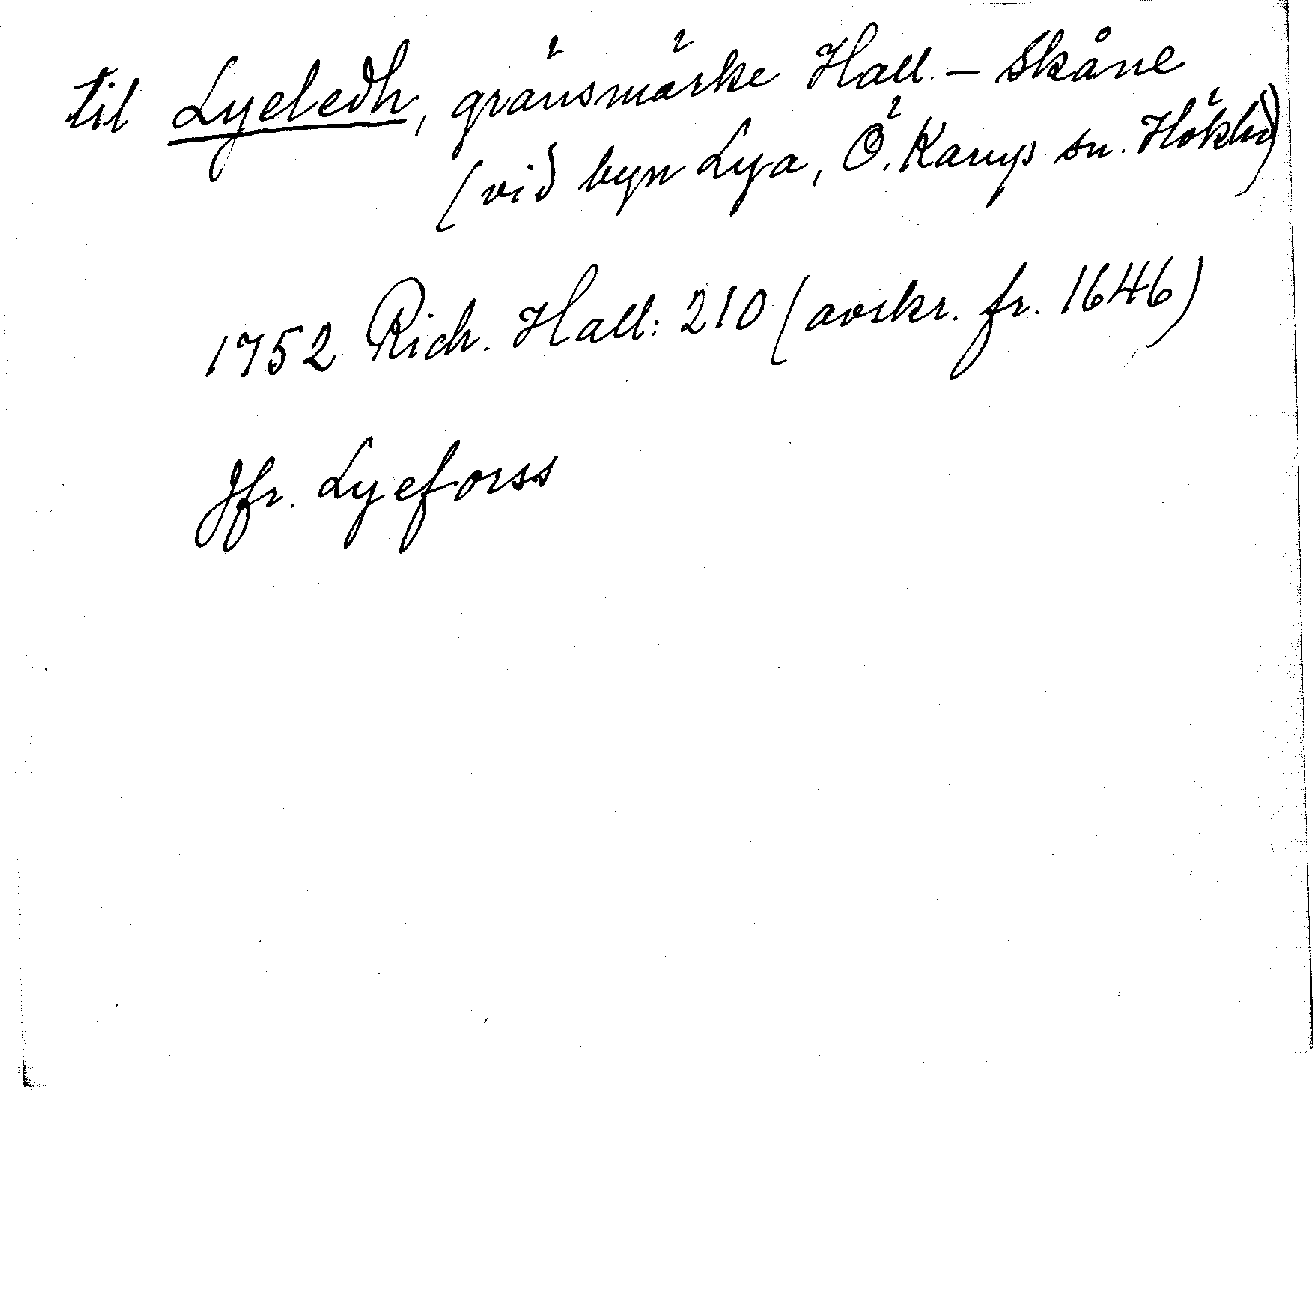 til Lyeledh, gränsmärke Hall. – Skåne
(vid byn Lya, Ö. Karup sn. Hökhd)
1752 Rich. Hall: 210 (avskr. fr. 1646)
Jfr. Lyeforss